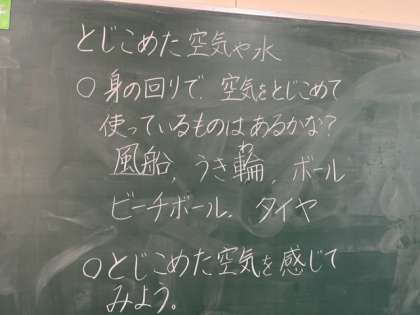 とじこめた空気や水
○身の回りで、空気をとじこめて
使っているものはあるかな？
風船、うき輪、ボール
わ
ビーチボール、タイヤ
○とじこめた空気を感じて
みよう。